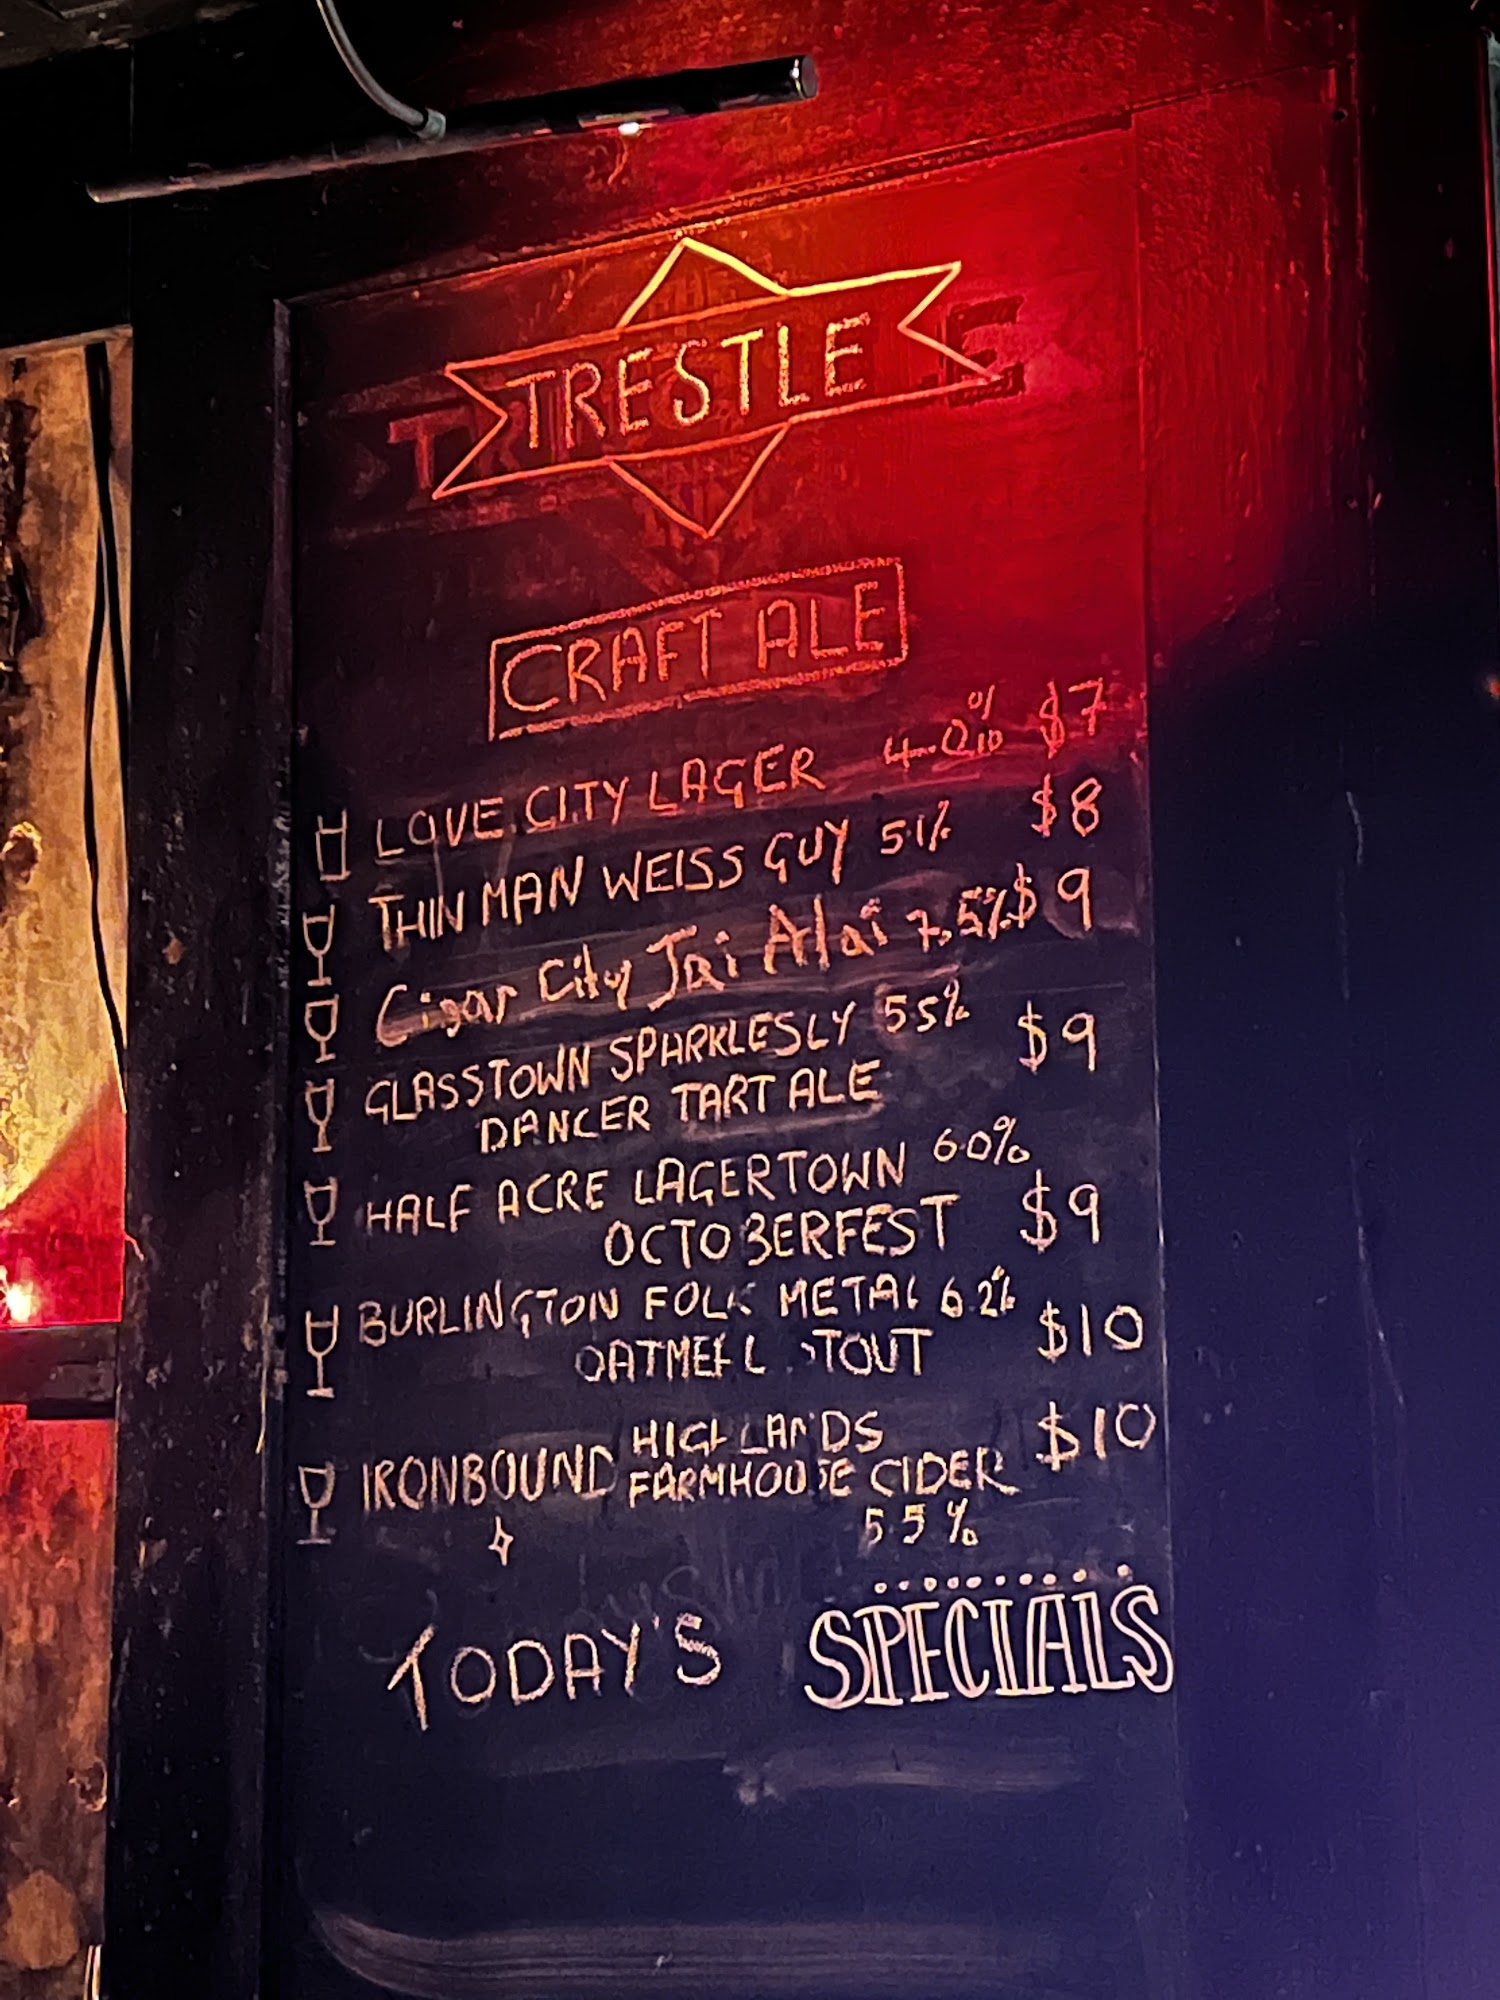 TRESTLE
CRAFT ALE
LOVE CITY LAGER 4.0% $7
THIN MAN WEISS GUY 5.1% $8
Cigar City Jai Alai 7.5% $9
GLASSTOWN SPARKLESLY 5.5%
DANCER TART ALE $9
HALF ACRE LAGERTOWN 6.0%
OCTOBERFEST $9
BURLINGTON FOLK METAL 6.2%
OATMEEL STOUT $10
IRONBOUND HIGHLANDS
FARMHOUSE CIDER $10
5.5%
TODAY'S SPECIALS